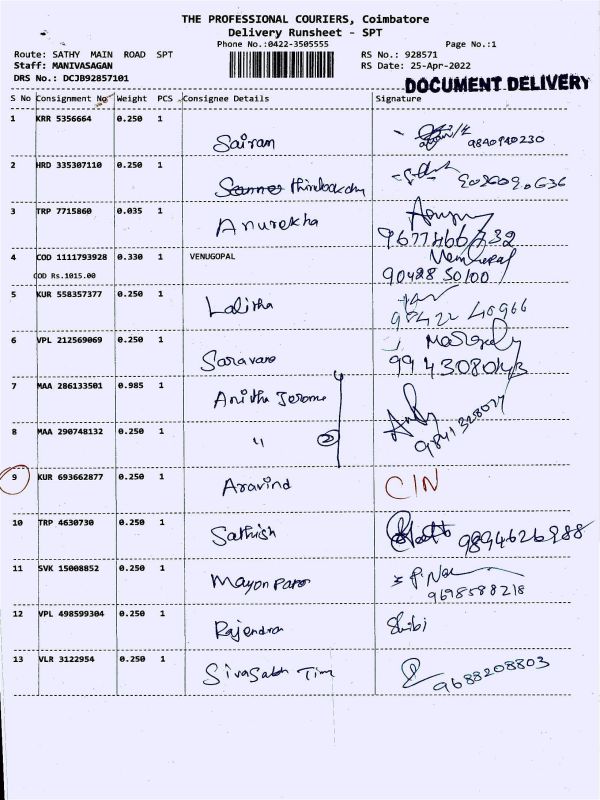 THE PROFESSIONAL COURIERS, Coimbatore
Delivery Runsheet - SPT
Phone No.:0422-3505555 Page No.:1
Route: SATHY MAIN ROAD SPT RS No.: 928571
Staff: MANIVASAGAN RS Date: 25-Apr-2022
DRS No.: DCJB92857101 DOCUMENT DELIVERY
S No Consignment No Weight PCS Consignee Details Signature
1 KRR 5356664 0.250 1 Sairam
2 HRD 335307110 0.250 1
3 TRP 7715860 0.035 1 Anurekha 9677466732
4 COD 1111793928 0.330 1 VENUGOPAL 90428 50100
COD Rs.1015.00
5 KUR 558357377 0.250 1 Lalitha 98422 40966
6 VPL 212569069 0.250 1 Saravana
7 MAA 286133501 0.985 1 Anitha Jerome
8 MAA 290748132 0.250 1 " 2 9841328027
9 KUR 693662877 0.250 1 Aravind CIN
10 TRP 4630730 0.250 1 Sathish 9894626988
11 SVK 15008852 0.250 1 9698588218
12 VPL 498599304 0.250 1 Rajendra Shibi
13 VLR 3122954 0.250 1 9688208803